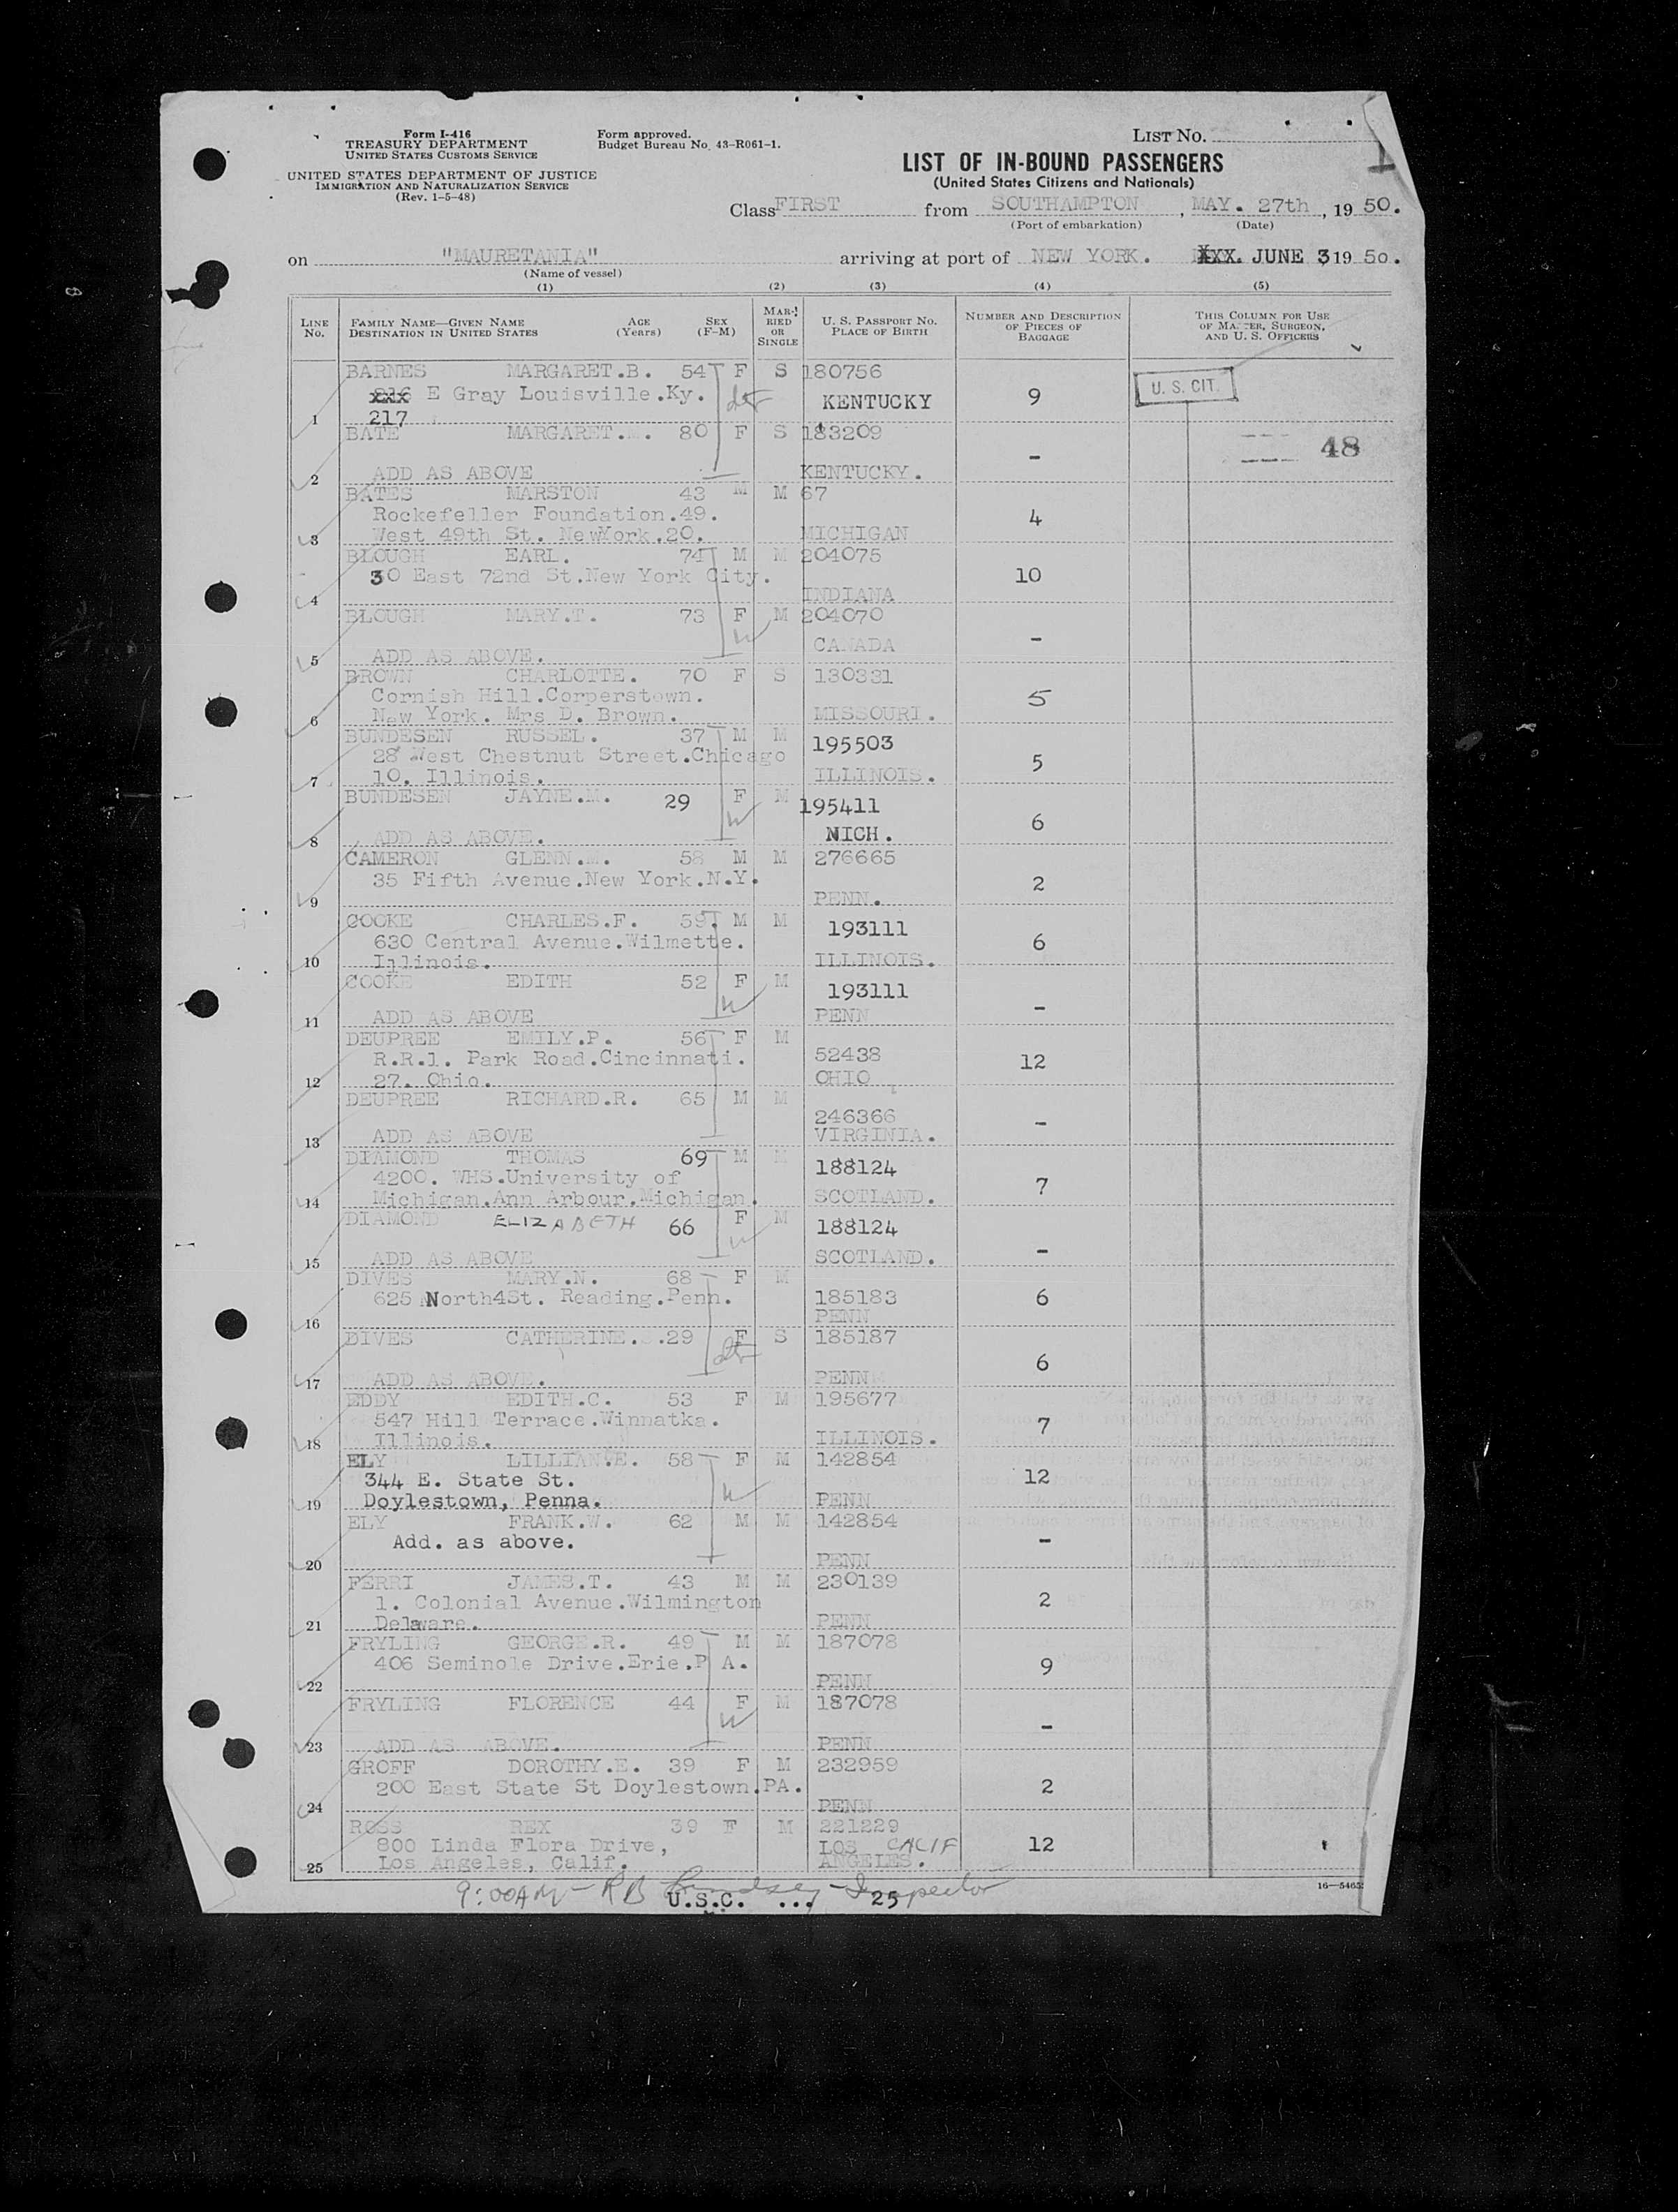 Form I-416
TREASURY DEPARTMENT
UNITED STATES CUSTOMS SERVICE
UNITED STATES DEPARTMENT OF JUSTICE
IMMIGRATION AND NATURALIZATION SERVICE
(Rev. 1-5-48)
Form approved.
Budget Bureau No. 43-R061-1.
LIST No.
1
LIST OF IN-BOUND PASSENGERS
(United States Citizens and Nationals)
Class FIRST from SOUTHAMPTON, MAY. 27th, 19 50.
(Port of embarkation) (Date)
on "MAURETANIA" arriving at port of NEW YORK. XXX. JUNE 3 19 50.
(Name of vessel)
(1) (2) (3) (4) (5)
LINE No. FAMILY NAME—GIVEN NAME DESTINATION IN UNITED STATES AGE (Years) SEX (F-M) MARRIED OR SINGLE U. S. PASSPORT No. PLACE OF BIRTH NUMBER AND DESCRIPTION OF PIECES OF BAGGAGE THIS COLUMN FOR USE OF MASTER, SURGEON, AND U. S. OFFICERS
BARNES MARGARET.B. 54 F S 180756
E Gray Louisville.Ky. KENTUCKY 9 U. S. CIT.
1 217
BATE MARGARET. 80 F S 183209
- 48
2 ADD AS ABOVE KENTUCKY.
BATES MARSTON 43 M M 67
Rockefeller Foundation.49. 4
3 West 49th St. NewYork.20. MICHIGAN
BLOUGH EARL. 74 M M 204075
30 East 72nd St.New York City. 10
4 INDIANA
BLOUGH MARY.T. 73 F M 204070
W CANADA -
5 ADD AS ABOVE.
BROWN CHARLOTTE. 70 F S 130331
Cornish Hill.Corperstown. 5
6 New York. Mrs D. Brown. MISSOURI.
BUNDESEN RUSSEL. 37 M M 195503
28 West Chestnut Street.Chicago 5
7 10. Illinois. ILLINOIS.
BUNDESEN JAYNE.M. 29 F M 195411
W 6
8 ADD AS ABOVE. NICH.
CAMERON GLENN. 58 M M 276665
35 Fifth Avenue.New York.N.Y. 2
9 PENN.
COOKE CHARLES.F. 59 M M 193111
630 Central Avenue.Wilmette. 6
10 Illinois. ILLINOIS.
COOKE EDITH 52 F M 193111
W -
11 ADD AS ABOVE PENN
DEUPREE EMILY.P. 56 F M
R.R.1. Park Road.Cincinnati. 52438 12
12 27. Ohio. OHIO
DEUPREE RICHARD.R. 65 M M
246366 -
13 ADD AS ABOVE VIRGINIA.
DIAMOND THOMAS 69 M M 188124
4200. WHS.University of 7
14 Michigan.Ann Arbour.Michigan. SCOTLAND.
DIAMOND ELIZABETH 66 F M 188124
W -
15 ADD AS ABOVE SCOTLAND.
DIVES MARY.N. 68 F M
625 North4St. Reading.Penn. 185183 6
16 PENN
DIVES CATHERINE. .29 F S 185187
6
17 ADD AS ABOVE. PENN
EDDY EDITH.C. 53 F M 195677
547 Hill Terrace.Winnatka. 7
18 Illinois. ILLINOIS.
ELY LILLIAN.E. 58 F M 142854
344 E. State St. W 12
19 Doylestown, Penna. PENN
ELY FRANK.W. 62 M M 142854
Add. as above. -
20 PENN
FERRI JAMES.T. 43 M M 230139
1. Colonial Avenue.Wilmington 2
21 Delaware. PENN
FRYLING GEORGE.R. 49 M M 187078
406 Seminole Drive.Erie.P A. 9
22 PENN
FRYLING FLORENCE 44 F M 187078
W -
23 ADD AS ABOVE. PENN
GROFF DOROTHY.E. 39 F M 232959
200 East State St Doylestown.PA. 2
24 PENN
ROSS REX 39 F M 221229
800 Linda Flora Drive, LOS CALIF 12
25 Los Angeles, Calif. ANGELES.
9:00AM - RB Inspector
U.S.C. ... 25